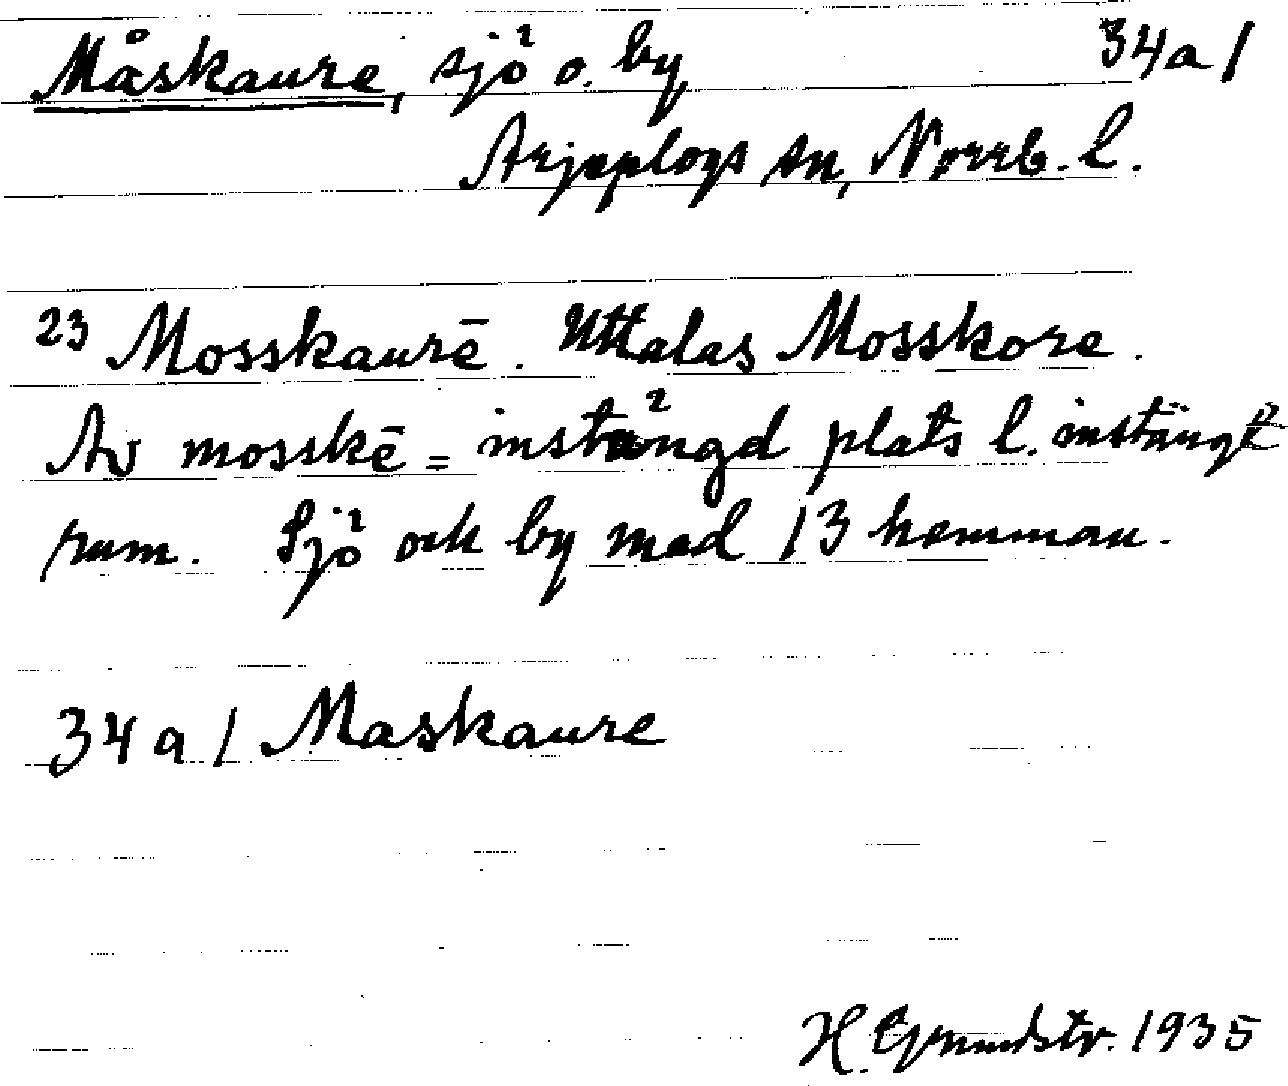 Måskaure, sjö o. by 34a1
Arjeplogs sn, Norrb. l.
23 Mosskaurē. Uttalas Mosskore.
Av mosskē = instängd plats l. instängt
rum. Sjö och by med 13 hemman.
34a1 Maskaure
H. Grundstr. 1935